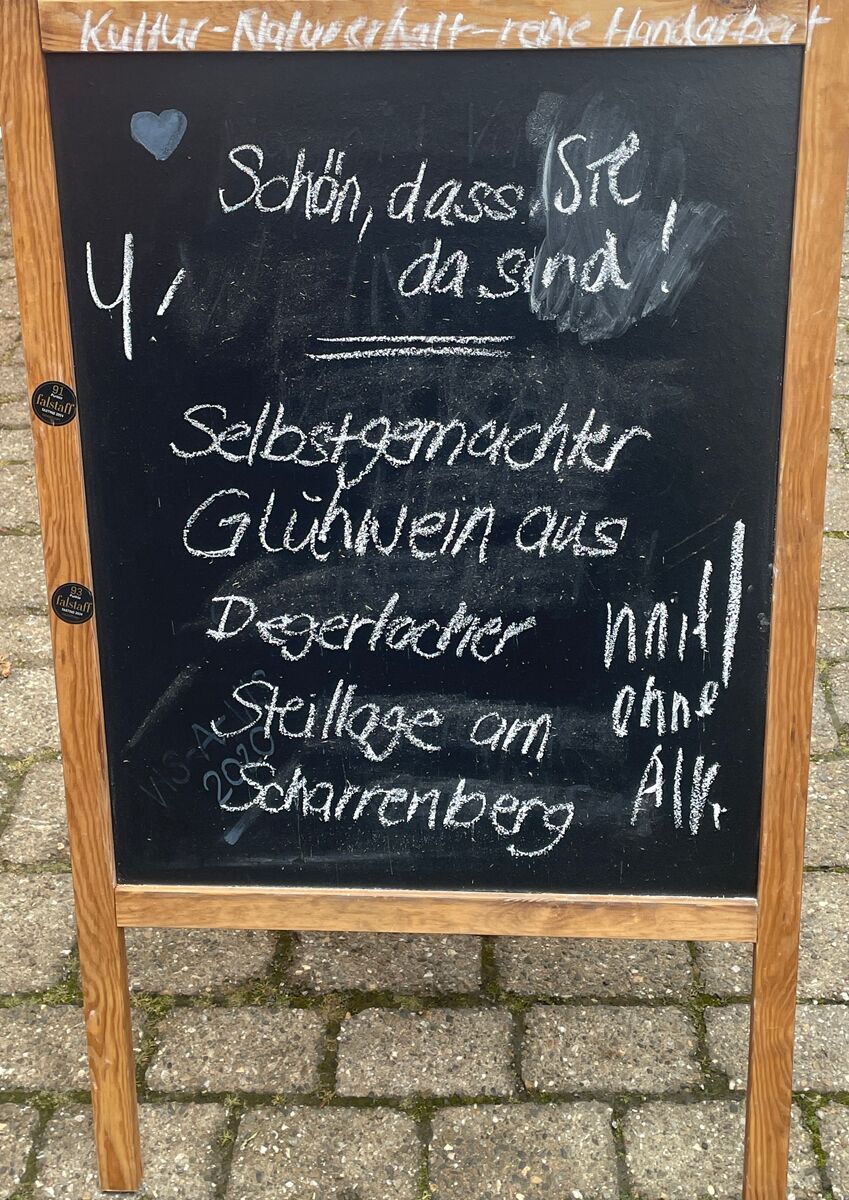 Kultur-Naturerhalt-reine Handarbeit
Schön, dass Sie
da sind!
4,
Selbstgemachter
Glühwein aus
Degerlocher
Steillage am
Scharrenberg
mit/
ohne
Alk.
91
Punkte
falstaff
93
Punkte
falstaff
2020